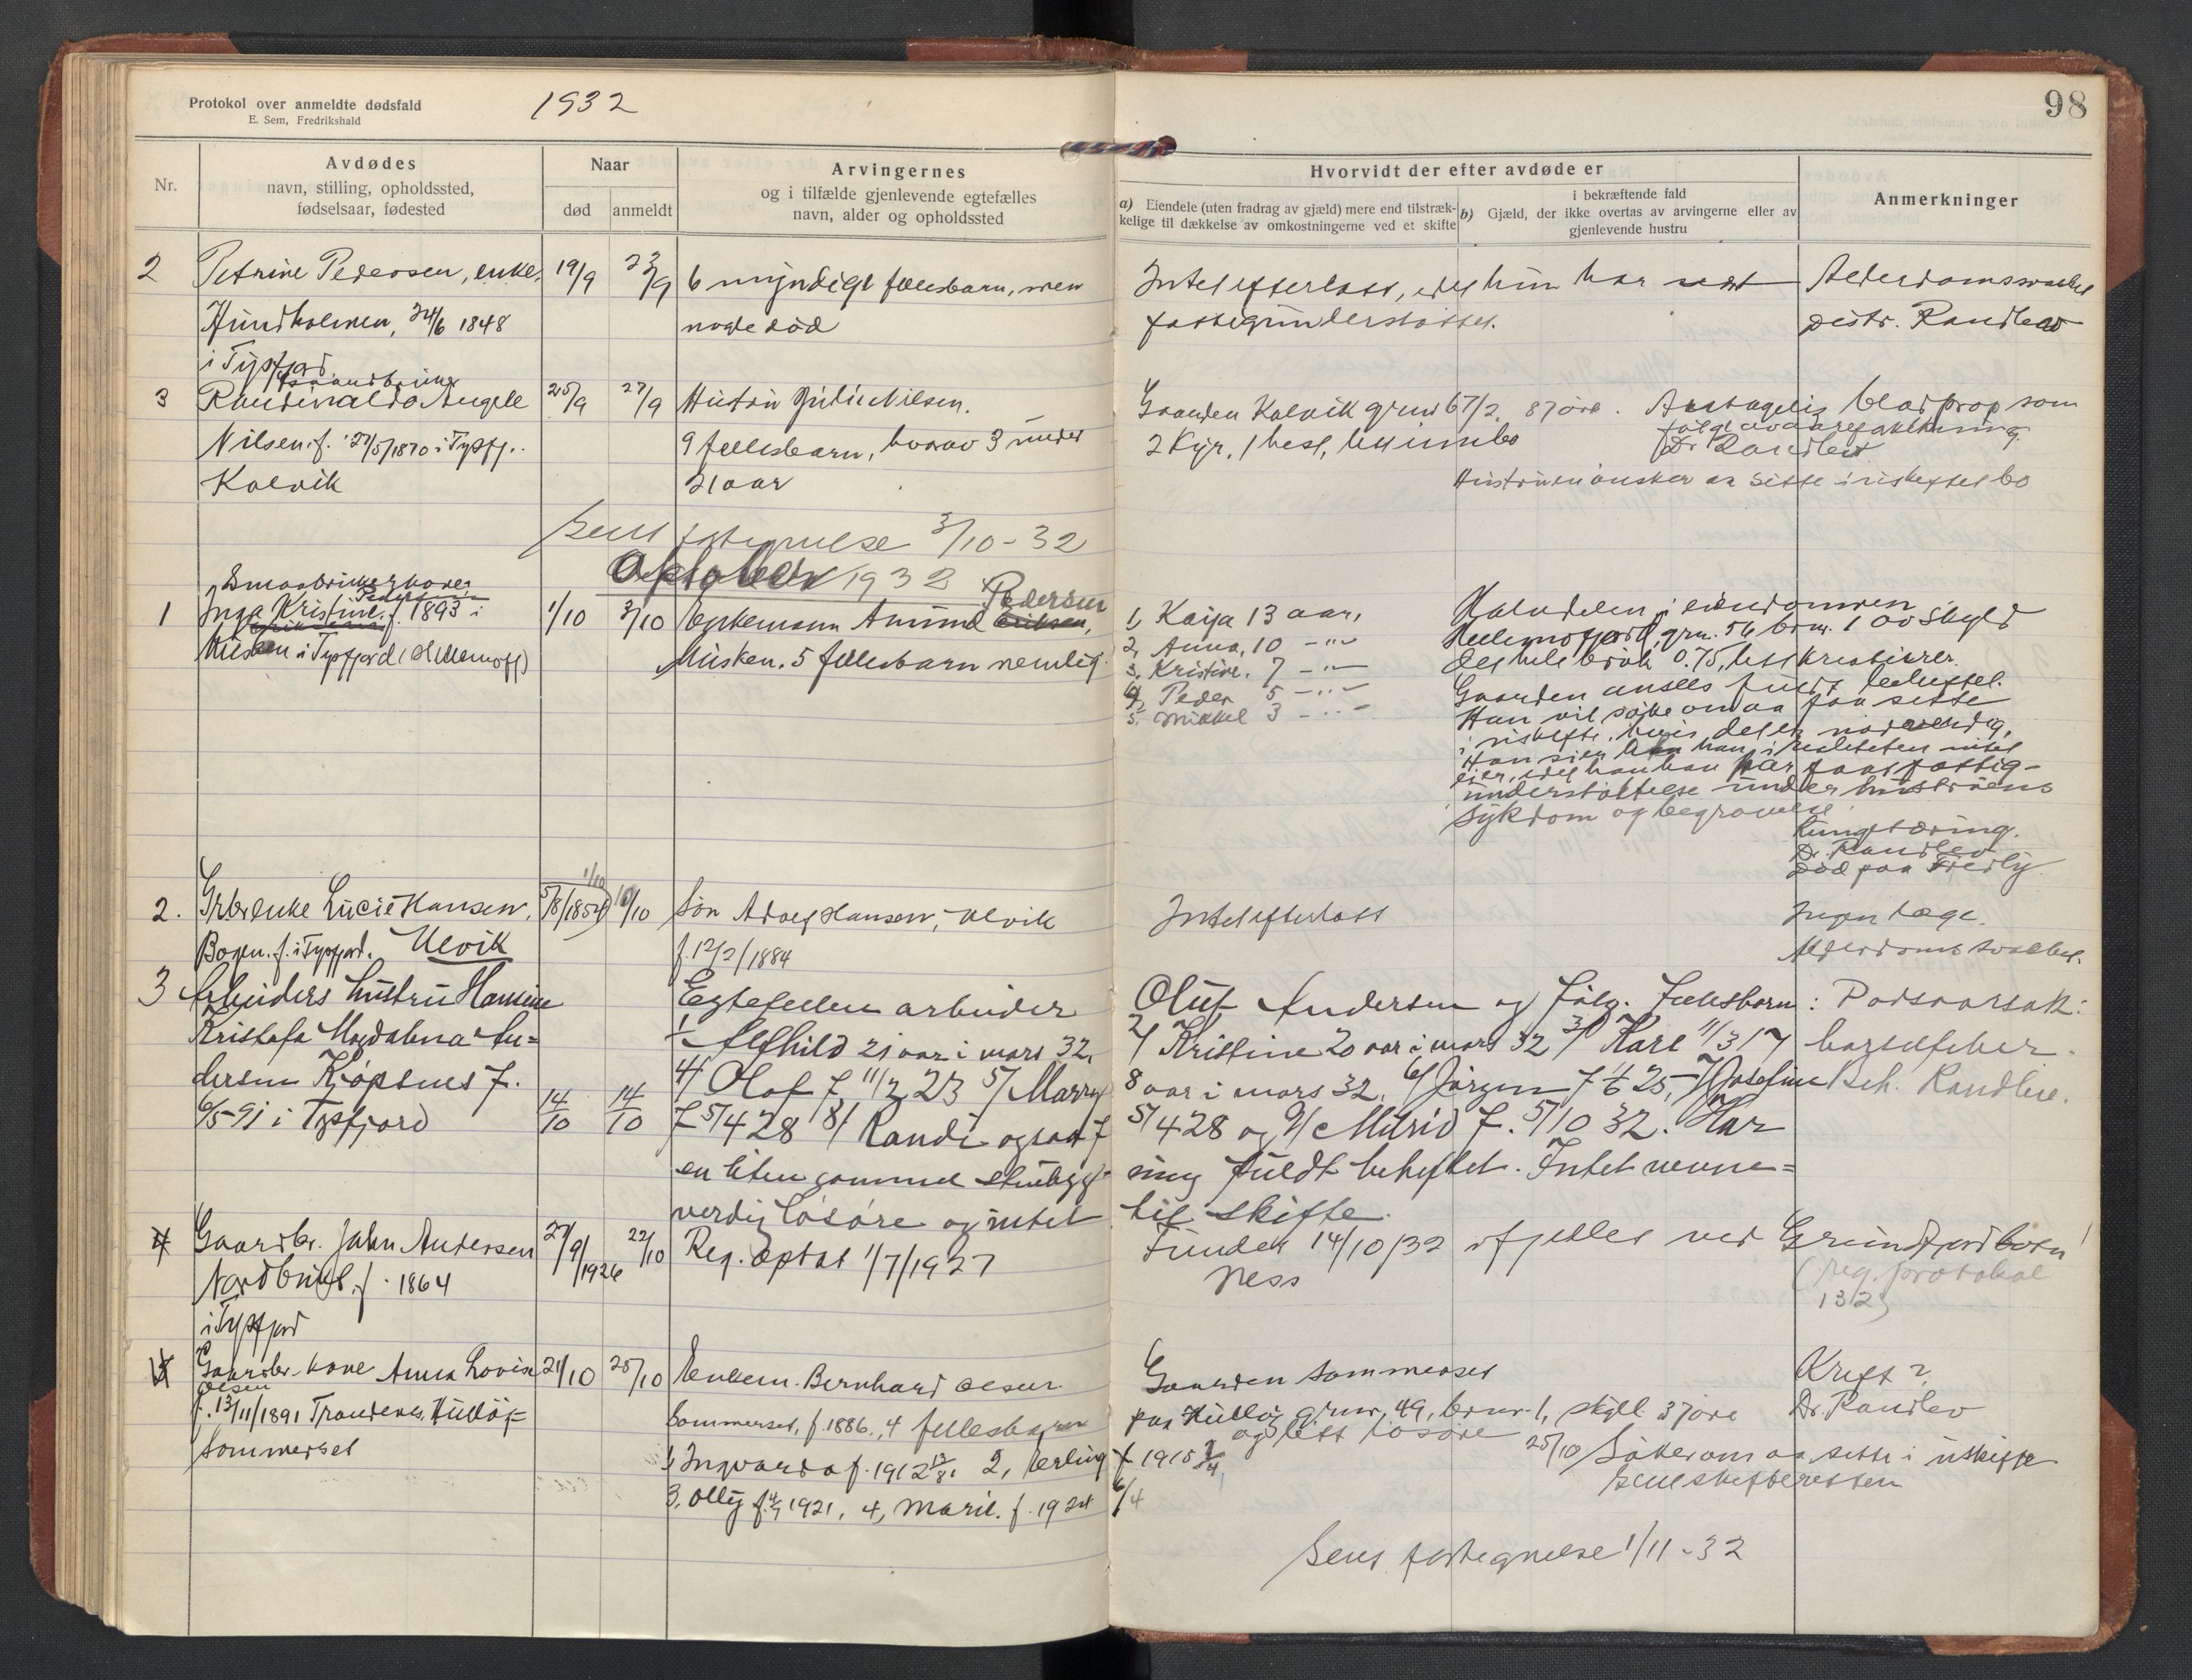 Protokol over anmeldte dødsfald
E. Sem, Fredrikshald
1932
98
Nr.
Avdødes
navn, stilling, opholdssted,
fødselsaar, fødested
Naar
død
anmeldt
Arvingernes
og i tilfælde gjenlevende egtefælles
navn, alder og opholdssted
Hvorvidt der efter avdøde er
a) Eiendele (uten fradrag av gjæld) mere end tilstræk-
kelige til dækkelse av omkostningerne ved et skifte
i bekræftende fald
b) Gjæld, der ikke overtas av arvingerne eller av
gjenlevende hustru
Anmerkninger
2 Petrine Pedersen, enke, 19/9 23/9 6 myndige fellesbarn, men
Hundholmen, 24/6 1848 nogle död
i Tysfjord
Intet efterlatt, idet hun har vært
fattigunderstøttet.
Alderdomssvakhet
Distr. Randlev
Gaardbruker
3 Nilsen f. 27/5/1870 i Tysfj.. 25/9 27/9 Hustru Julie Nilsen.
Kalvik
9 fellesbarn, hvorav 3 under
21 aar
Gaarden Kalvik grnr 67/2. 87 øre.
2 kyr, 1 hest, litt innbo
Antagelig blodprop som
følge av aareforkalkning
Dr Randlev
Hustruen ønsker aa sitte i uskiftet bo
Sent fortegnelse 3/10 - 32
Oktober 1932
Smaabrukerkone
Pedersen
1 Inga Kristine f. 1893 i 1/10 3/10 Enkemann Amund Eriksen, Pedersen
Musken i Tysfjord (Hellemoff)
Musken. 5 fellesbarn nemlig
1, Kaija 13 aar,
2, Anna, 10 - " -
3, Kristine. 7 - " -
4, Peder 5 - " -
5. Mikkel 3 - " -
Halvdelen i eiendommen
Hellemofjord, grn. 56 brnr. 1 av skyld
det hele bruk 0.75, litt kreaturer.
Gaarden ansees fuldt beheftet.
Han vil søke om aa faa sitte
i uskifte, hvis det er nødvendig,
Han sier han i realiteten intet
eier, idet han har faat fattig-
understøttelse under hustruens
sykdom og begravelse.
Lungetæring.
Dr. Randlev
Död paa Fredly.
2. Grbr.enke Lucie Hansen, 5/8/1854 1/10 10/10 Sön Adolf Hansen, Ulvik
Bogen. f. i Tysfjord. Ulvik f. 12/2/1884
Intet efterlatt
Ingen læge.
Alderdomssvakhet.
3 Arbeiders hustru Hansine
Kristofa Magdalena An=
dersen Kjøpsnes f.
6/5-91 i Tysfjord 14/10 14/10
Egtefellen arbeider Oluf Andersen og følg. fellesbarn:
1/ Alfhild 21 aar i mars 32, 2/ Kristine 20 aar i mars 32 3/ Kare 11/3 17
4/ Olaf f. 11/2 23 5/ Marry 8 aar i mars 32, 6/ Jörgen f 25, 7/ Josefine
f 5/4 28 8/ Randi ogsaa f 5/4 28 og 9/ Milrid f. 5/10 32. Har
en liten gammel stubygg- ning fuldt beheftet. Intet nevne=
verdig løsøre og intet til skifte.
Dødsaarsak:
barselfeber.
Beh. Randlev.
4 Gaardbr. Johan Andersen 27/9/1926 22/10 Reg. optat 1/7/1927
f. 1864
i Tysfjord
Funden 14/10/32 ved Grundfjordbotn!
Ness
(reg. protokol
132)
5 Gaardbr. kone Anna Lovise 21/10 25/10 Enkem. Bernhard Olsen
Olsen
f. 13/11/1891 Trondenes, Hulløj=
Sommerset
Sommerset, f. 1886., 4 fellesbarn
1, Ingvarda f. 1912 12/8. 2, Erling f 1915 7/4
3, Olly f. 4/9 1921, 4, Marie. f. 1924 6/4
Gaarden Sommerset
paa Hulløy grnr, 49, brnr. 1, skyll. 37 øre
og litt løsøre
Kreft?
Dr. Randlev
25/10 Søker om aa sitte i uskifte
Send skifteretten
Sent fortegnelse 1/11 - 32